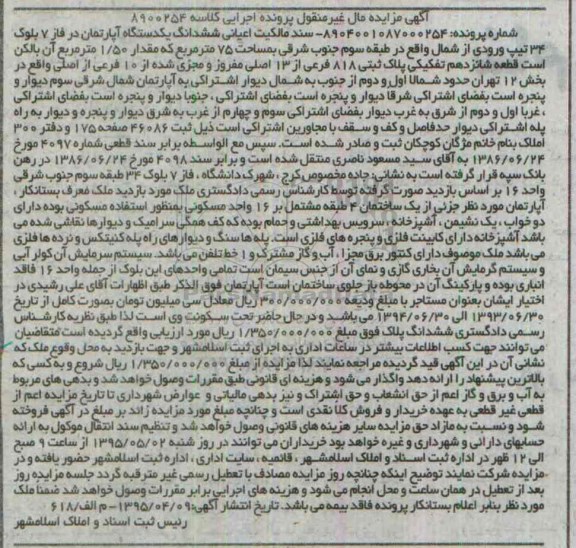 آگهی مزایده مال غیرمنقول پرونده اجرایی کلاسه 8900254
شماره پرونده: 8904001087000254- سند مالکیت اعیانی ششدانگ یکدستگاه آپارتمان در فاز 7 بلوک
34 تیپ ورودی از شمال واقع در طبقه سوم جنوب شرقی بمساحت 75 مترمربع که مقدار 1/50 مترمربع آن بالکن
است قطعه شانزدهم تفکیکی پلاک ثبتی 818 فرعی از 13 اصلی مفروز و مجزی شده از 10 فرعی از اصلی واقع در
بخش 12 تهران حدود شمالا اول و دوم از جنوب به شمال دیوار اشتراکی به آپارتمان شمال شرقی سوم دیوار و
پنجره است بفضای اشتراکی شرقا دیوار و پنجره است بفضای اشتراکی ، جنوبا دیوار و پنجره است بفضای اشتراکی
، غربا اول و دوم از شرق به غرب دیوار بفضای اشتراکی سوم و چهارم از غرب به شرق دیوار و پنجره و دیوار به راه
پله اشتراکی دیوار حدفاصل و کف و سقف با مجاورین اشتراکی است ذیل ثبت 46086 صفحه 175 و دفتر 300
املاک بنام خانم مژگان کوچکان ثبت و صادر شده است. سپس مع الواسطه برابر سند قطعی شماره 4097 مورخ
1386/06/24 به آقای سید مسعود ناصری منتقل شده است و برابر سند 4098 مورخ 1386/06/24 در رهن
بانک سپه قرار گرفته است به نشانی: جاده مخصوص کرج ، شهرک دانشگاه ، فاز 7 بلوک 34 طبقه سوم جنوب شرقی
واحد 16 بر اساس بازدید صورت گرفته توسط کارشناس رسمی دادگستری ملک مورد بازدید ملک معرف بستانکار ،
آپارتمان مورد نظر جزئی از یک ساختمان 4 طبقه مشتمل بر 16 واحد مسکونی بمنظور استفاده مسکونی بوده دارای
دو خواب ، یک نشیمن ، آشپزخانه ، سرویس بهداشتی و حمام بوده که کف همگی سرامیک و دیوارها نقاشی شده می
باشد آشپزخانه دارای کابینت فلزی و پنجره های فلزی است. پله ها سنگ و دیوارهای راه پله کنیتکس و نرده ها فلزی
می باشد ملک موصوف دارای کنتور برق مجزا ، آب و گاز مشترک و 1 خط تلفن می باشد. سیستم سرمایش آن کولر آبی
و سیستم گرمایش آن بخاری گازی و نمای آن از جنس سیمان است تمامی واحدهای این بلوک از جمله واحد 16 فاقد
انباری بوده و پارکینگ آن در محوطه باز جلوی ساختمان است آپارتمان فوق الذکر طبق اظهارات آقای علی رشیدی در
اختیار ایشان بعنوان مستاجر با مبلغ ودیعه 300/000/000 ریال معادل سی میلیون تومان بصورت کامل از تاریخ
1393/06/30 الی 1394/06/30 می باشد و در حال حاضر تحت سکونت وی است لذا طبق نظریه کارشناس
رسمی دادگستری ششدانگ پلاک فوق مبلغ 1/350/000/000 ریال مورد ارزیابی واقع گردیده است متقاضیان
می توانند جهت کسب اطلاعات بیشتر در ساعات اداری به اجرای ثبت اسلامشهر و جهت بازدید به محل وقوع ملک که
نشانی آن در این آگهی قید گردیده مراجعه نمایند لذا مزایده از مبلغ 1/350/000/000 ریال شروع و به کسی که
بالاترین پیشنهاد را ارائه دهد واگذار می شود و هزینه ای قانونی طبق مقررات وصول خواهد شد و بدهی های مربوط
به آب و برق و گاز اعم از حق انشعاب و حق اشتراک و نیز بدهی مالیاتی و عوارض شهرداری تا تاریخ مزایده اعم از
قطعی غیر قطعی به عهده خریدار و فروش کلا نقدی است و چنانچه مبلغ مورد مزایده زائد بر مبلغ در آگهی فروخته
شود و نسبت به مازاد حق مزایده سایر هزینه های قانونی وصول خواهد شد و تنظیم سند انتقال موکول به ارائه
حسابهای دارائی و شهرداری و غیره خواهد بود خریداران می توانند در روز شنبه 1395/05/02 از ساعت 9 صبح
الی 12 ظهر در اداره ثبت اسناد و املاک اسلامشهر ، قائمیه ، سایت اداری ، اداره ثبت اسلامشهر حضور یافته و در
مزایده شرکت نمایند توضیح اینکه چنانچه روز مزایده مصادف با تعطیل رسمی غیر مترقبه گردد جلسه مزایده روز
بعد از تعطیل در همان ساعت و محل انجام می شود و هزینه های اجرایی برابر مقررات وصول خواهد شد ضمنا ملک
مورد نظر بنابر اعلام بستانکار پرونده فاقد بیمه می باشد. تاریخ انتشار آگهی: 1395/04/09- م الف/618
رئیس ثبت اسناد و املاک اسلامشهر